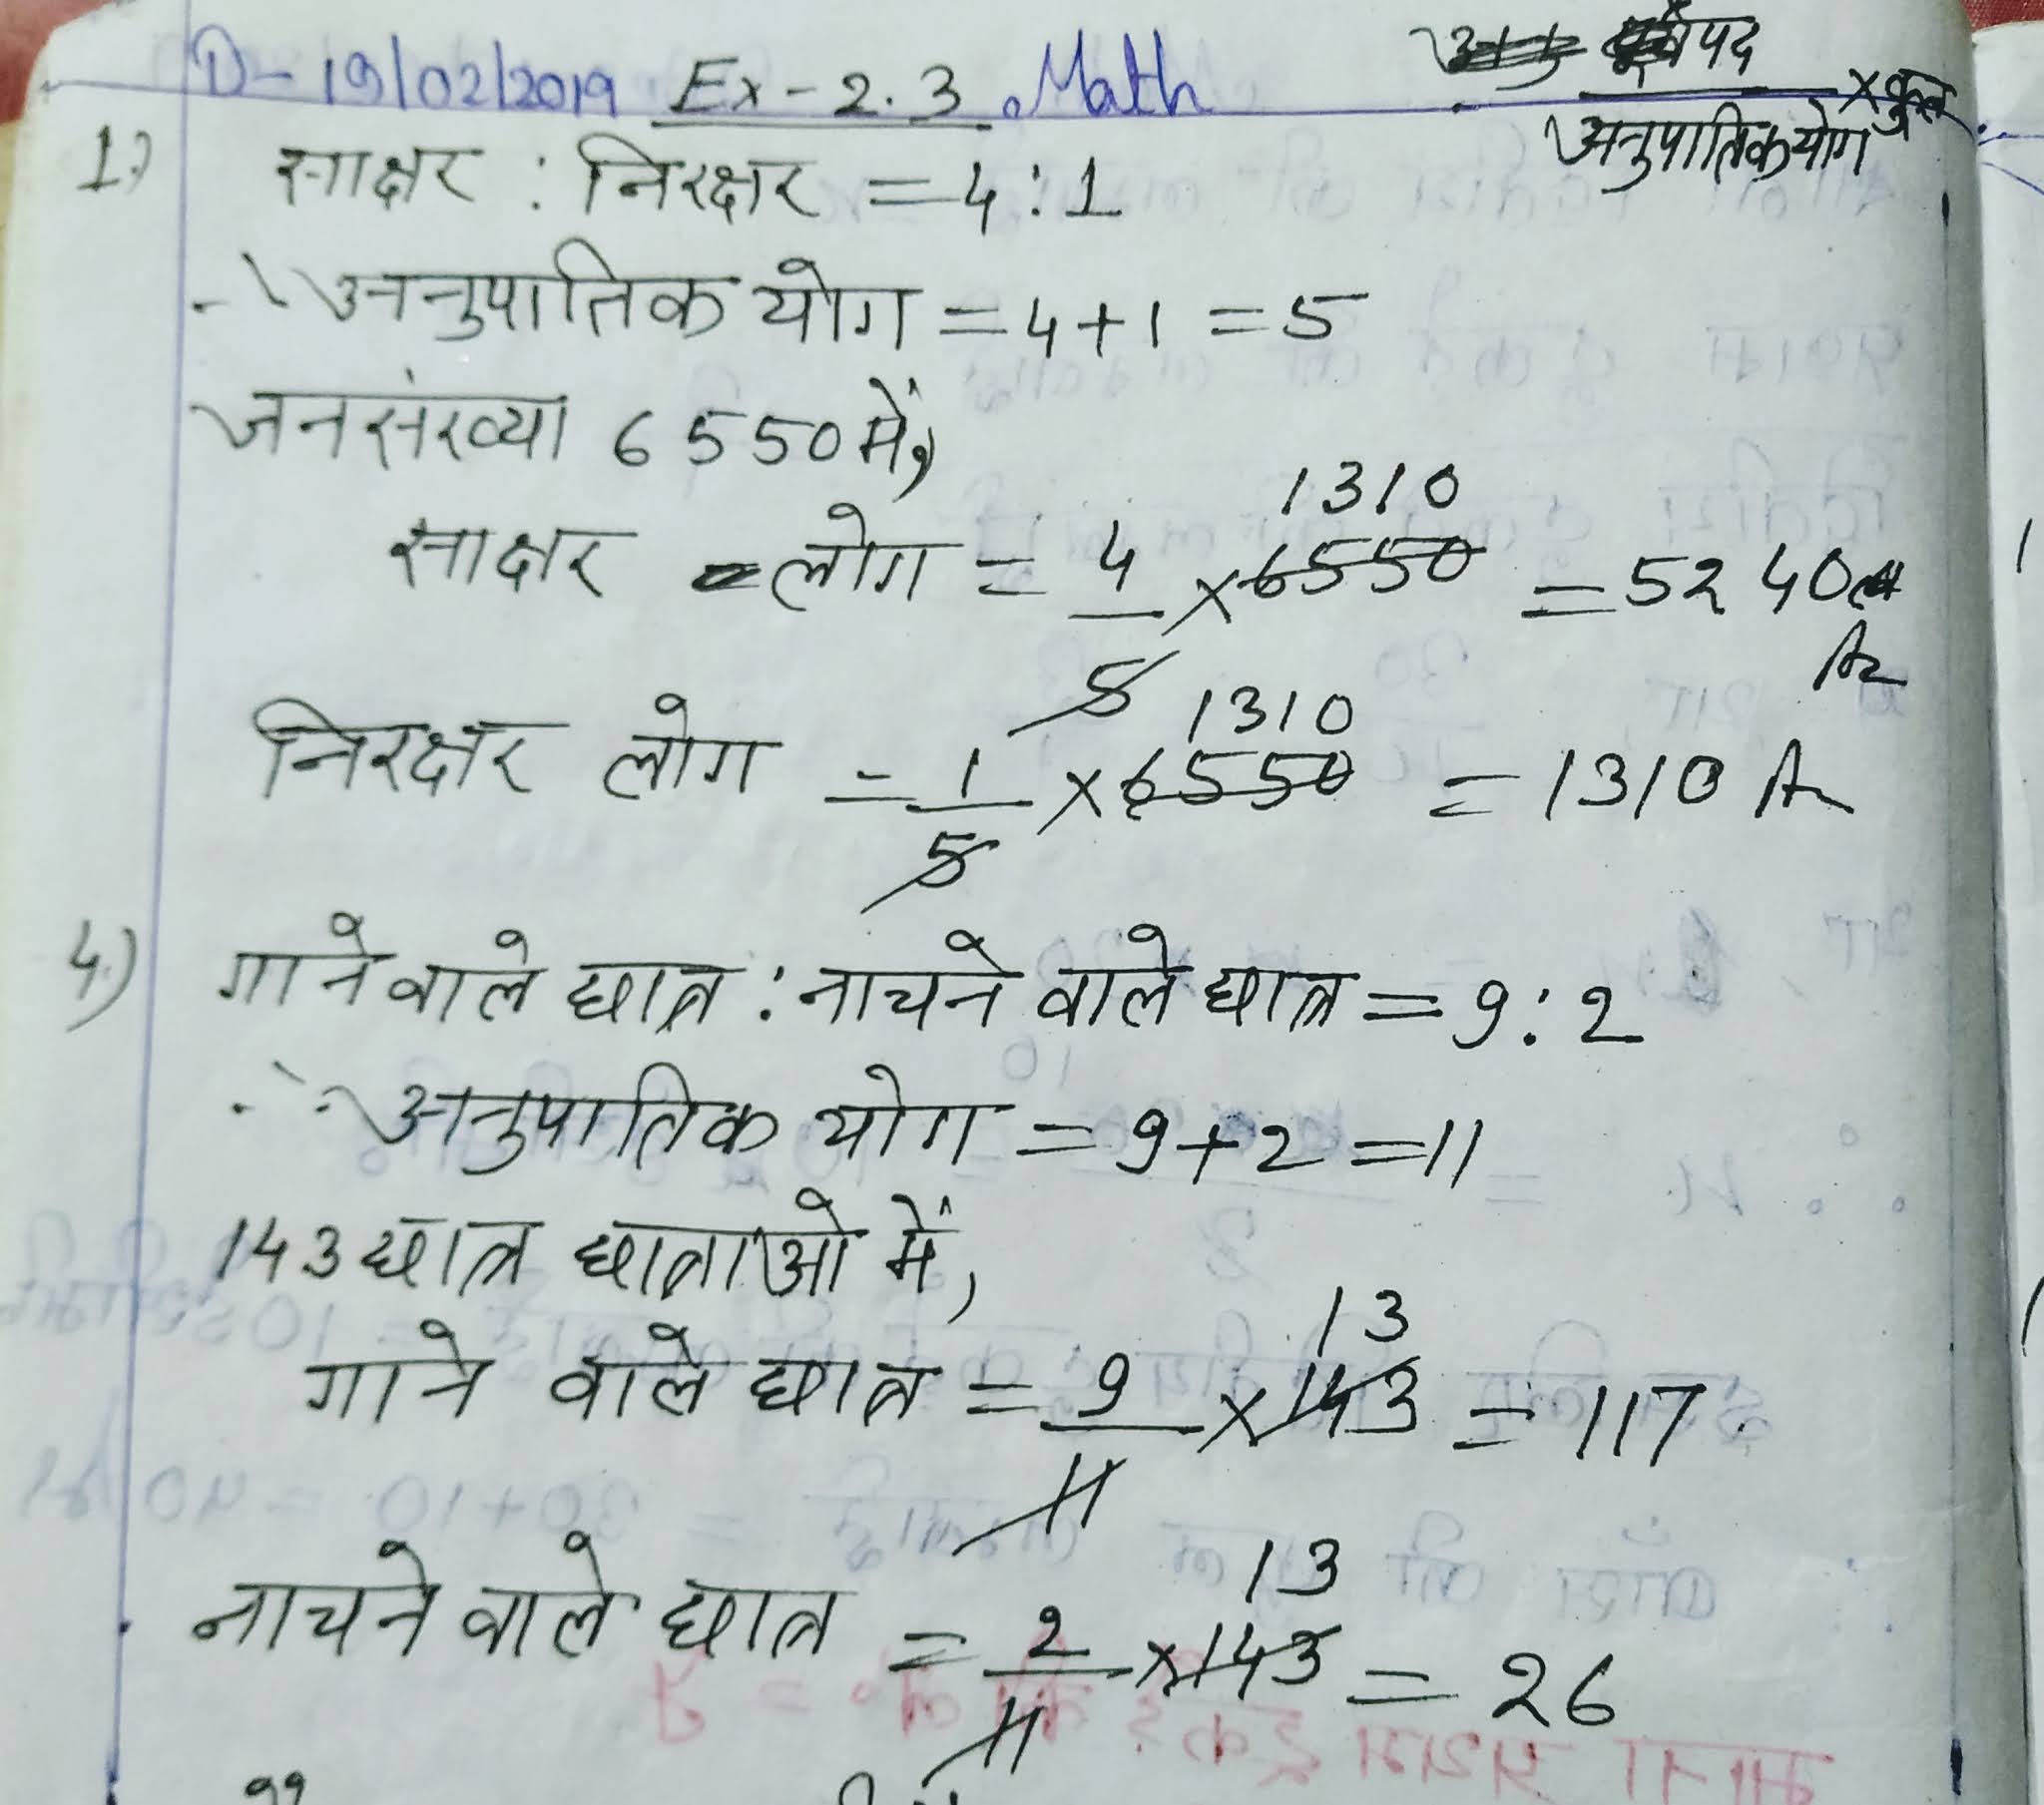 D-19/02/2019 Ex-2.3 Math
पद × कुल
अनुपातिक योग
1.) साक्षर : निरक्षर = 4:1
∴ अनुपातिक योग = 4+1 = 5
जनसंख्या 6550 में,
1310
साक्षर लोग = 4/5 × 6550 = 5240
A
1310
निरक्षर लोग = 1/5 × 6550 = 1310 A
4.) गाने वाले छात्र : नाचने वाले छात्र = 9:2
∴ अनुपातिक योग = 9+2 = 11
143 छात्र छात्राओ में,
13
गाने वाले छात्र = 9/11 × 143 = 117
13
नाचने वाले छात्र = 2/11 × 143 = 26